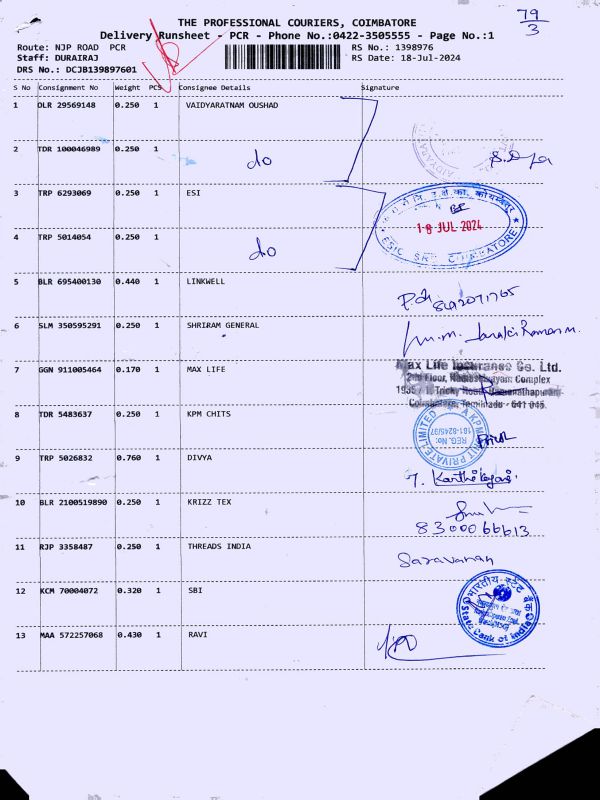 THE PROFESSIONAL COURIERS, COIMBATORE
79
3
Delivery Runsheet - PCR - Phone No.:0422-3505555 - Page No.:1
Route: NJP ROAD PCR
RS No.: 1398976
Staff: DURAIRAJ
RS Date: 18-Jul-2024
DRS No.: DCJB139897601
S No Consignment No Weight PCS Consignee Details Signature
1 DLR 29569148 0.250 1 VAIDYARATNAM OUSHAD
2 TDR 100046989 0.250 1 do
3 TRP 6293069 0.250 1 ESI
18 JUL 2024
ESIC SRO COIMBATORE
4 TRP 5014054 0.250 1 do
5 BLR 695400130 0.440 1 LINKWELL
6 SLM 350595291 0.250 1 SHRIRAM GENERAL
7 GGN 911005464 0.170 1 MAX LIFE
Max Life Insurance Co. Ltd.
Coimbatore, Tamilnadu - 641 045.
8 TDR 5483637 0.250 1 KPM CHITS
9 TRP 5026832 0.760 1 DIVYA
10 BLR 2100519890 0.250 1 KRIZZ TEX
8300066613
11 RJP 3358487 0.250 1 THREADS INDIA
Saravanan
12 KCM 70004072 0.320 1 SBI
भारतीय स्टेट बैंक
State Bank of India
13 MAA 572257068 0.430 1 RAVI